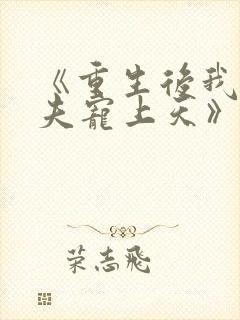 《重生後我
夫寵上天》
荣志飛